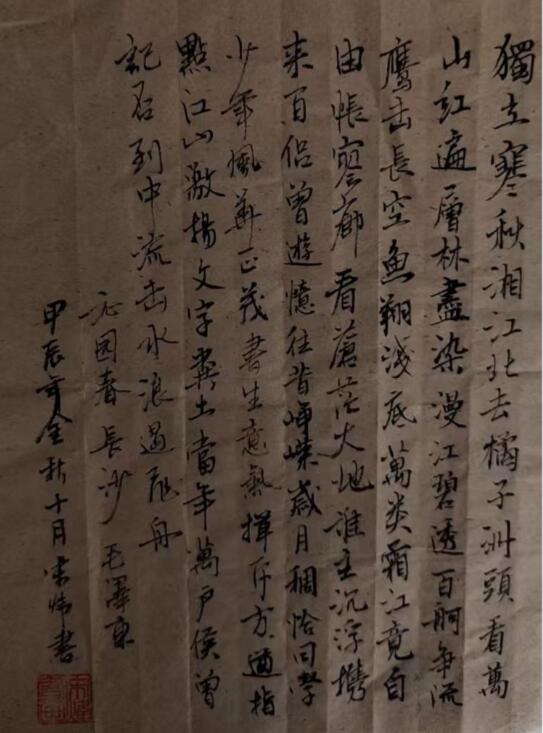 獨立寒秋湘江北去橘子洲頭看萬
山紅遍層林盡染漫江碧透百舸争流
鹰击長空魚翔浅底萬类霜江竟自
由帳寥廊看蒼茫大地誰主沉浮携
来百侣曾遊憶往昔崢嶸歲月稠恰同學
少年風華正茂書生意氣揮斥方遒指
點江山激揚文字粪土當年萬户侯曾
記否到中流击水浪遏飛舟
沁园春 長沙 毛澤東
甲辰年金秋十月宋炜書